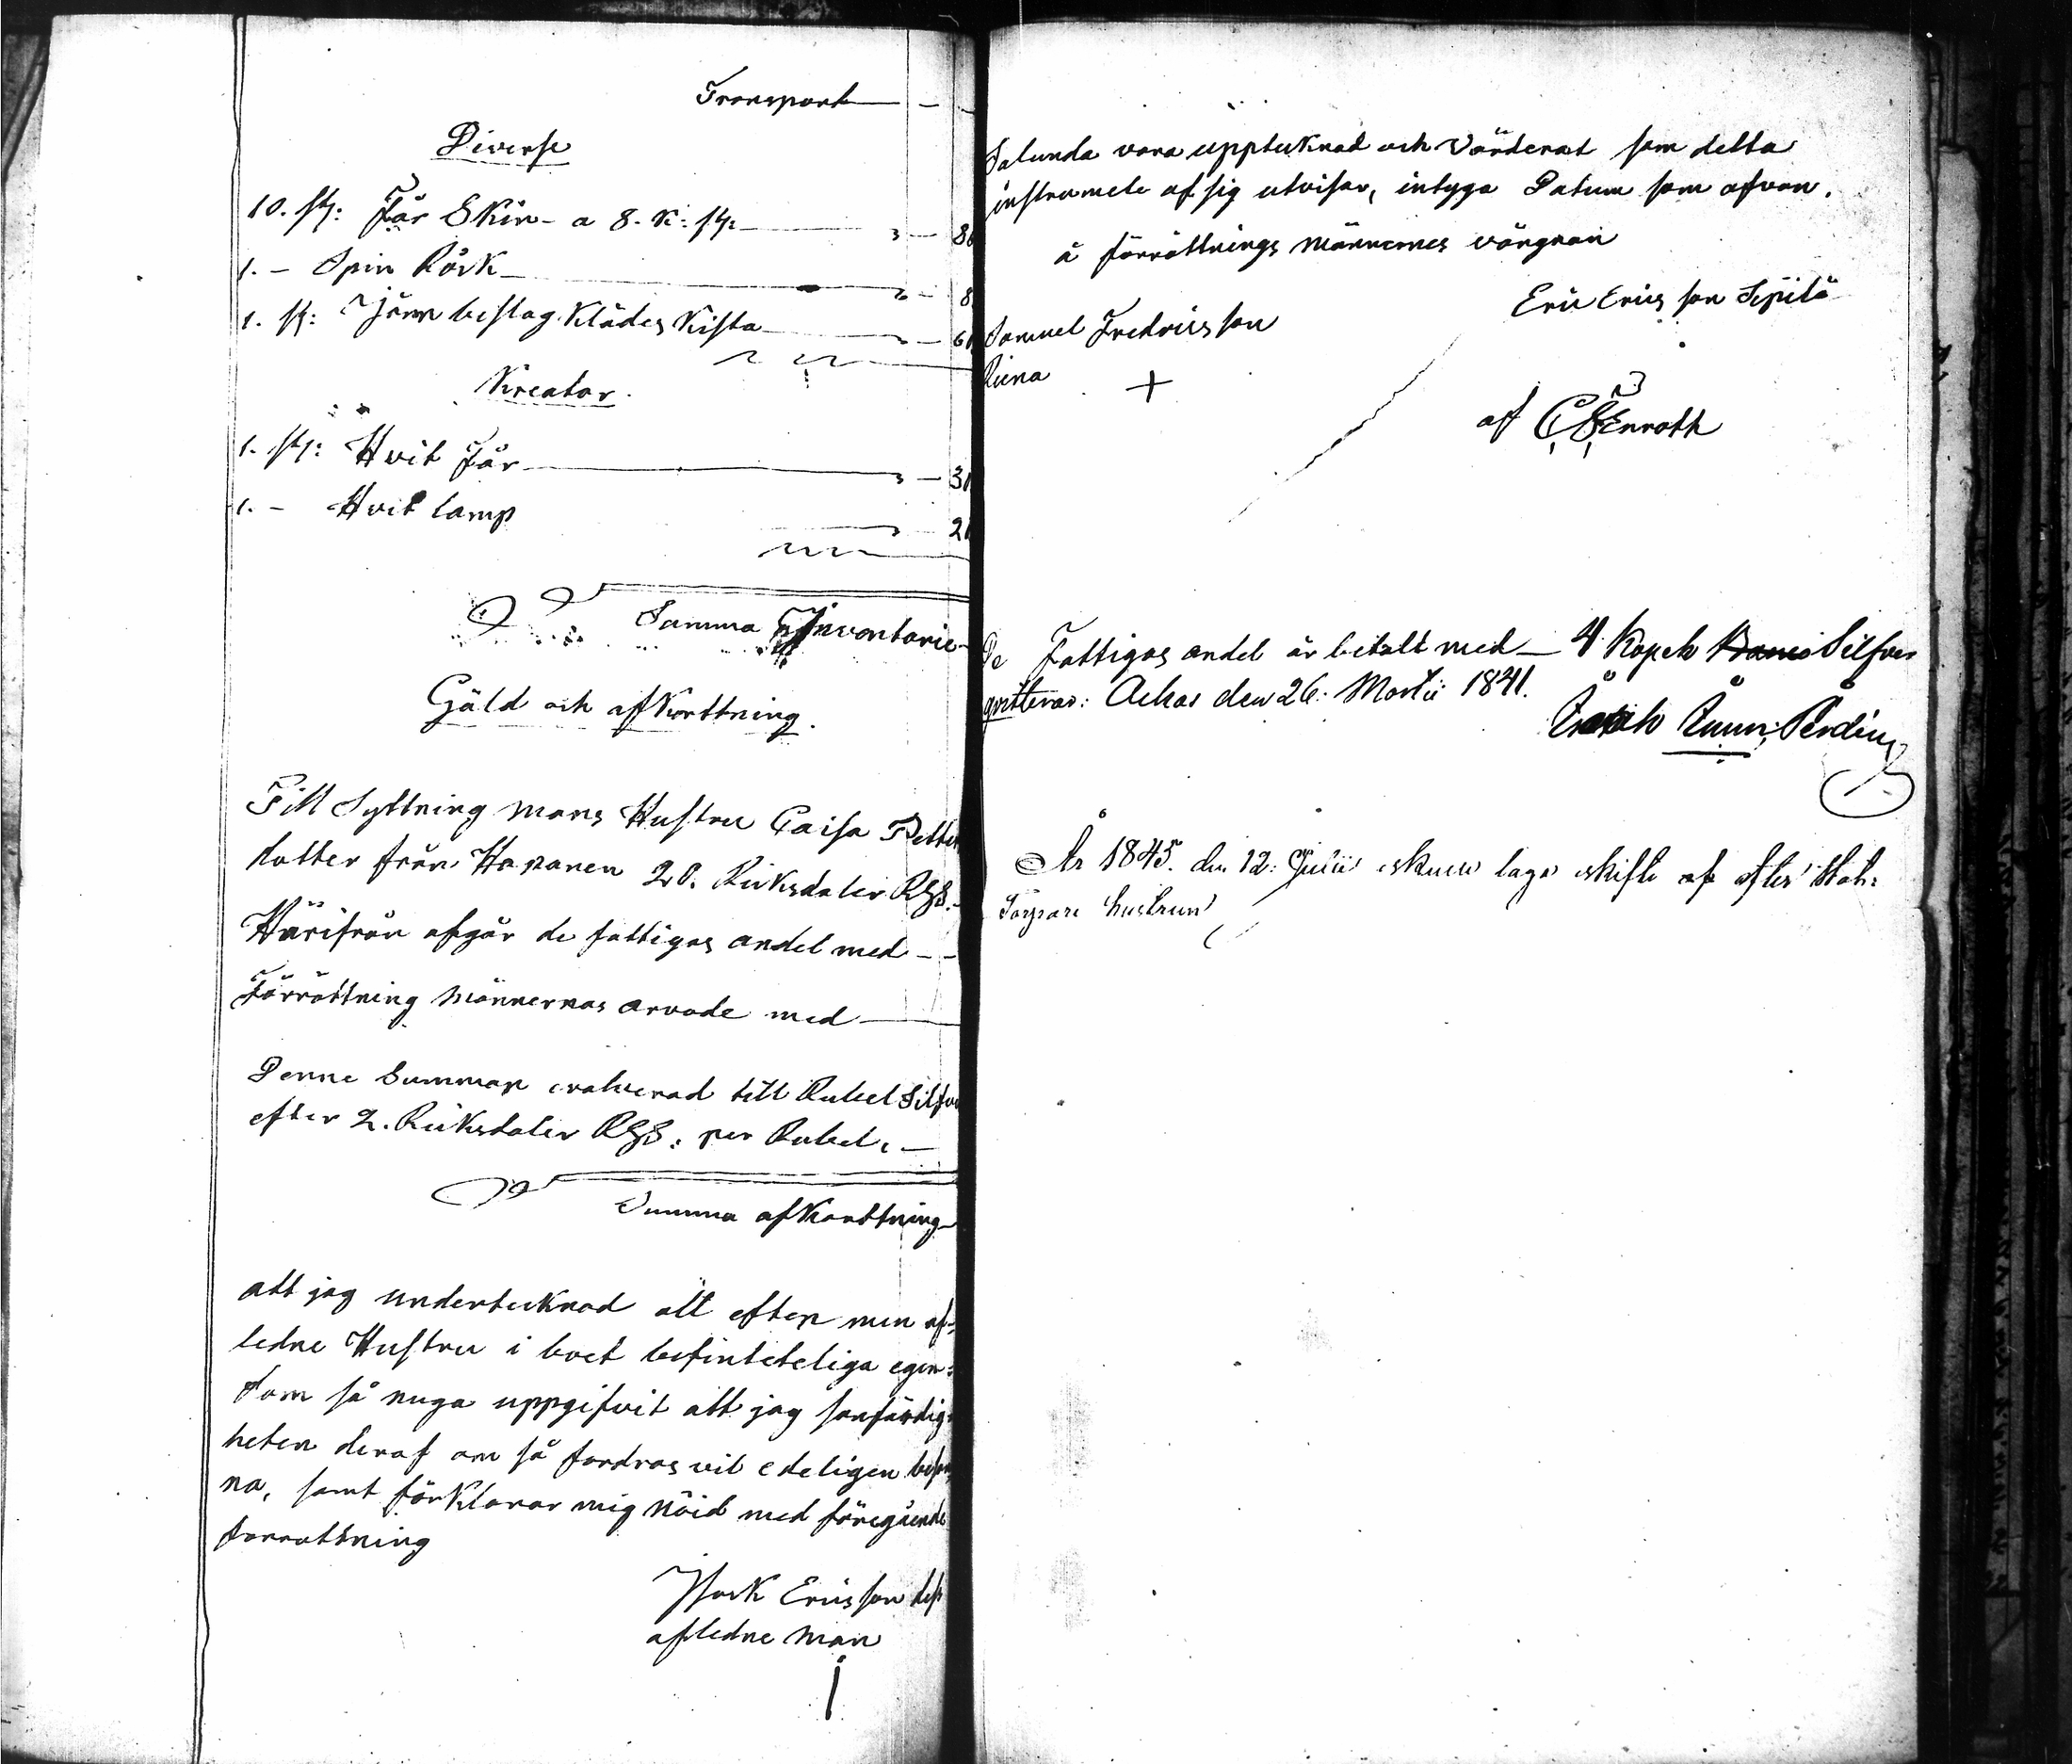 Transport
Diverse
10. st: Får Skin - a 8. K: st: 80
1. - Spin Råck 8
1. st: Järn beslag Klädes Kista 60
Kreatur.
1. st: Hvit Får 30
1. - Hvit lamp 20
Summa Inventarie
Gäld och afkorttning.
Till Syttning mans Hustru Caisa Petter
dotter från Hapanen 20. Riksdaler RGS.
Härifrån afgår de fattigas andel med
Förrättning männernas arvode med
Denne Summan evalverad till Rubel Silfver
efter 2. Riksdaler RGS: per Rubel.
Summa afkorttning
att jag undertecknad alt efter min af-
ledne Hustru i boet befinteteliga egen:
dom så nuga uppgifvit att jag sanfärdig
heten deraf om så fordras vil edeligen
na, samt förklarar mig nöid med föregående
forrattning
Isack Ericsson
afledne man
Salunda vara upptecknad och Värderat som detta
instrumete af sig utvisar, intyga Datum som afvan.
å förrättnings männernes vängnan
Eric Ericsson Sepilä
Samuel Fredricsson
+
af C Enroth
De Fattigas andel är betalt med - 4 Kopek Silfver
qvitteras: Achas den 26: Martii 1841.
År 1845. den 12: Julii laga skifte af
Torpare hustrun